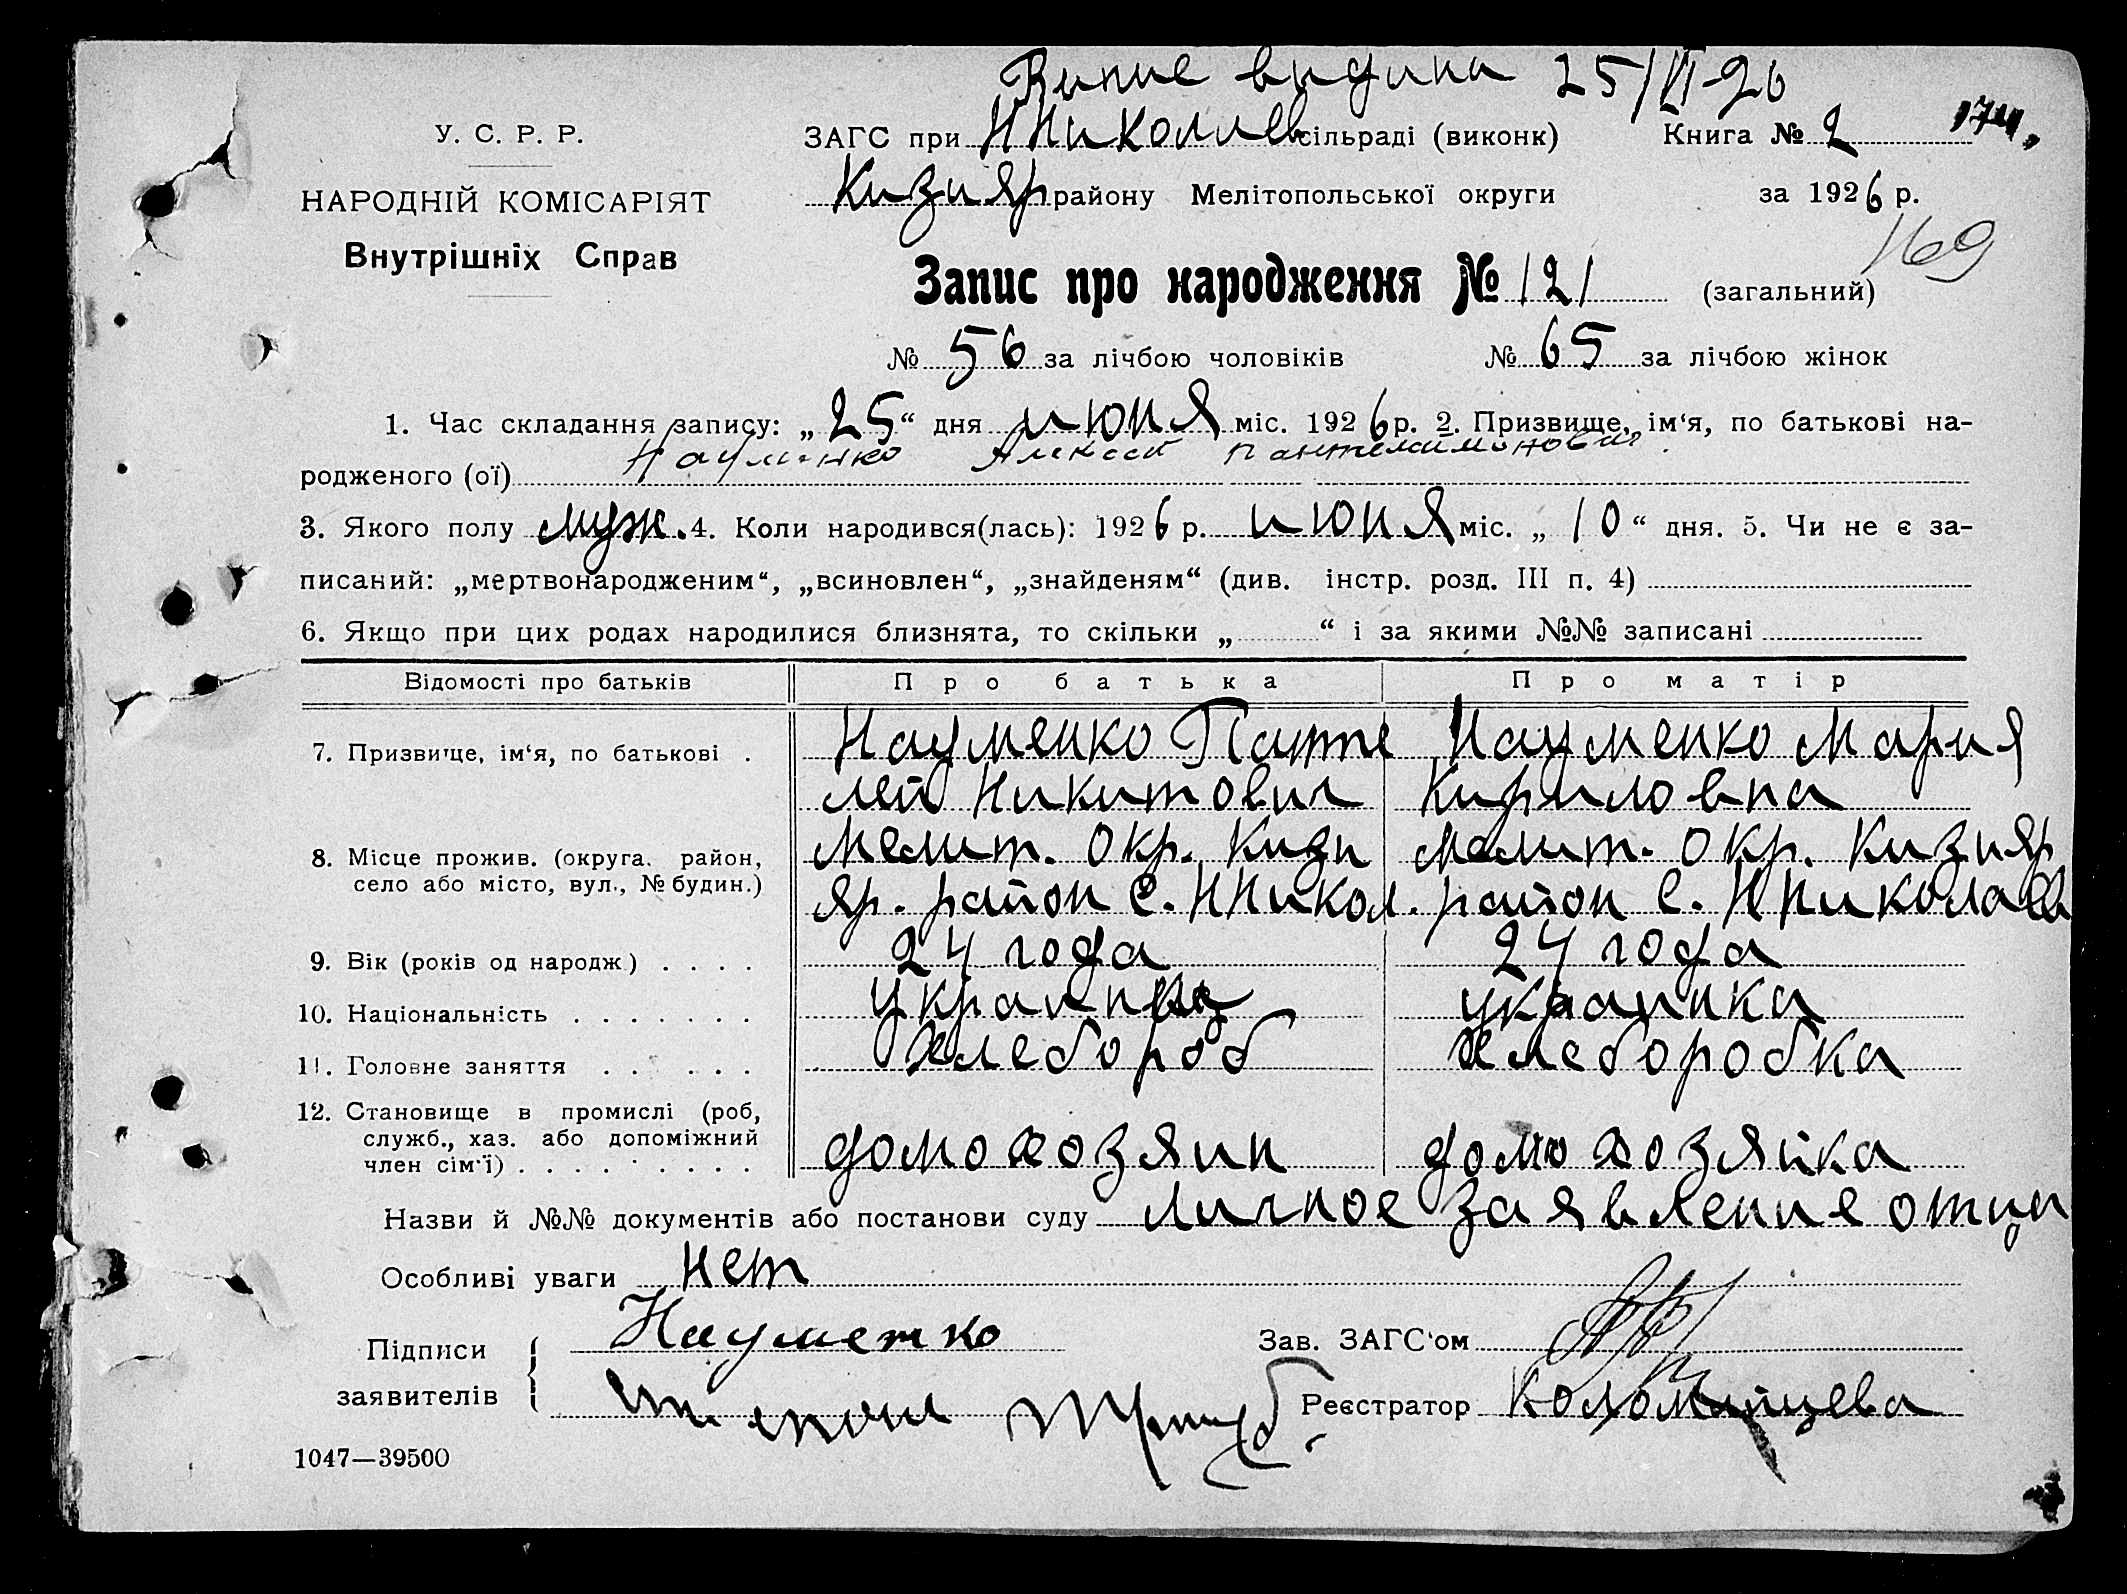 видана 25/VI-26
У. С. Р. Р.
ЗАГС при ННиколаев сільраді (виконк) Книга № 2 174,
НАРОДНІЙ КОМІСАРІЯТ
Кизияр району Мелітопольської округи за 1926 р.
Внутрішніх Справ
169
Запис про народження № 121 (загальний)
№ 56 за лічбою чоловіків № 65 за лічбою жінок
1. Час складання запису: „25“ дня июня міс. 1926 р. 2. Призвище, ім‘я, по батькові на-
родженого (ої) Науменко Алексей Пантелимонович.
3. Якого полу муж. 4. Коли народився(лась): 1926 р. июня міс. „10“ дня. 5. Чи не є за-
писаний: „мертвонародженим“, „всиновлен“, „знайденям“ (див. інстр. розд. III п. 4)
6. Якщо при цих родах народилися близнята, то скільки „ “ і за якими №№ записані
Відомості про батьків Про батька Про матір
7. Призвище, ім‘я, по батькові . Науменко Панте Науменко Мария
лей Никитович Кириловна
8. Місце прожив. (округа, район, Мелит. окр. Кизи Мелит. окр. Кизияр
село або місто, вул., № будин.) яр. район с. ННикол. район с. ННиколаев
9. Вік (років од народж.) . . . . 24 года 24 года
10. Національність . . . . . . . украинец украинка
11. Головне заняття . . . . . . хлебороб хлеборобка
12. Становище в промислі (роб,
служб., хаз. або допоміжний домохозяин домохозяйка
член сім‘ї) . . . . . . . . .
Назви й №№ документів або постанови суду личное заявление отца
Особливі уваги нет
Підписи Науменко Зав. ЗАГС‘ом
заявителів Реєстратор Коломийцева
1047—39500